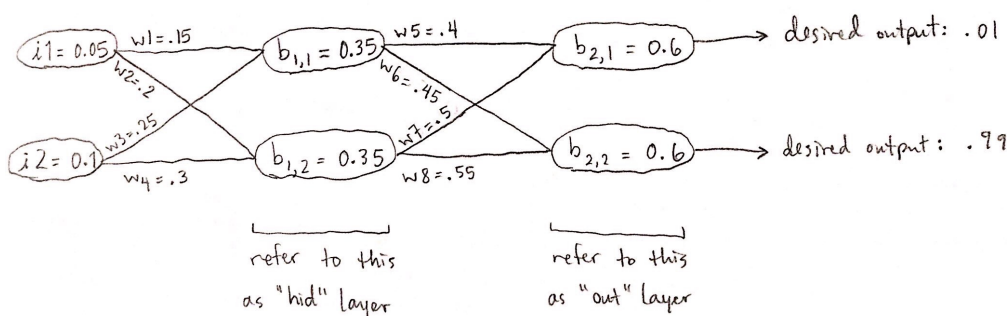 i1 = 0.05
w1=.15
w2=.2
b1,1 = 0.35
w5=.4
w6=.45
b2,1 = 0.6
desired output: .01
i2 = 0.1
w3=.25
w4=.3
b1,2 = 0.35
w7=.5
w8=.55
b2,2 = 0.6
desired output: .99
refer to this
as "hid" layer
refer to this
as "out" layer